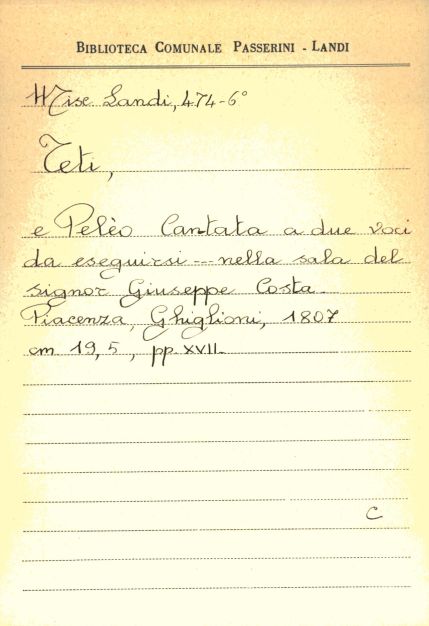 BIBLIOTECA COMUNALE PASSERINI - LANDI
Misc Landi, 474-6°
Teti,
e Pelèo Cantata a due voci
da eseguirsi --- nella sala del
signor Giuseppe Costa.
Piacenza, Ghiglioni, 1807
cm 19,5, pp. XVII.
C